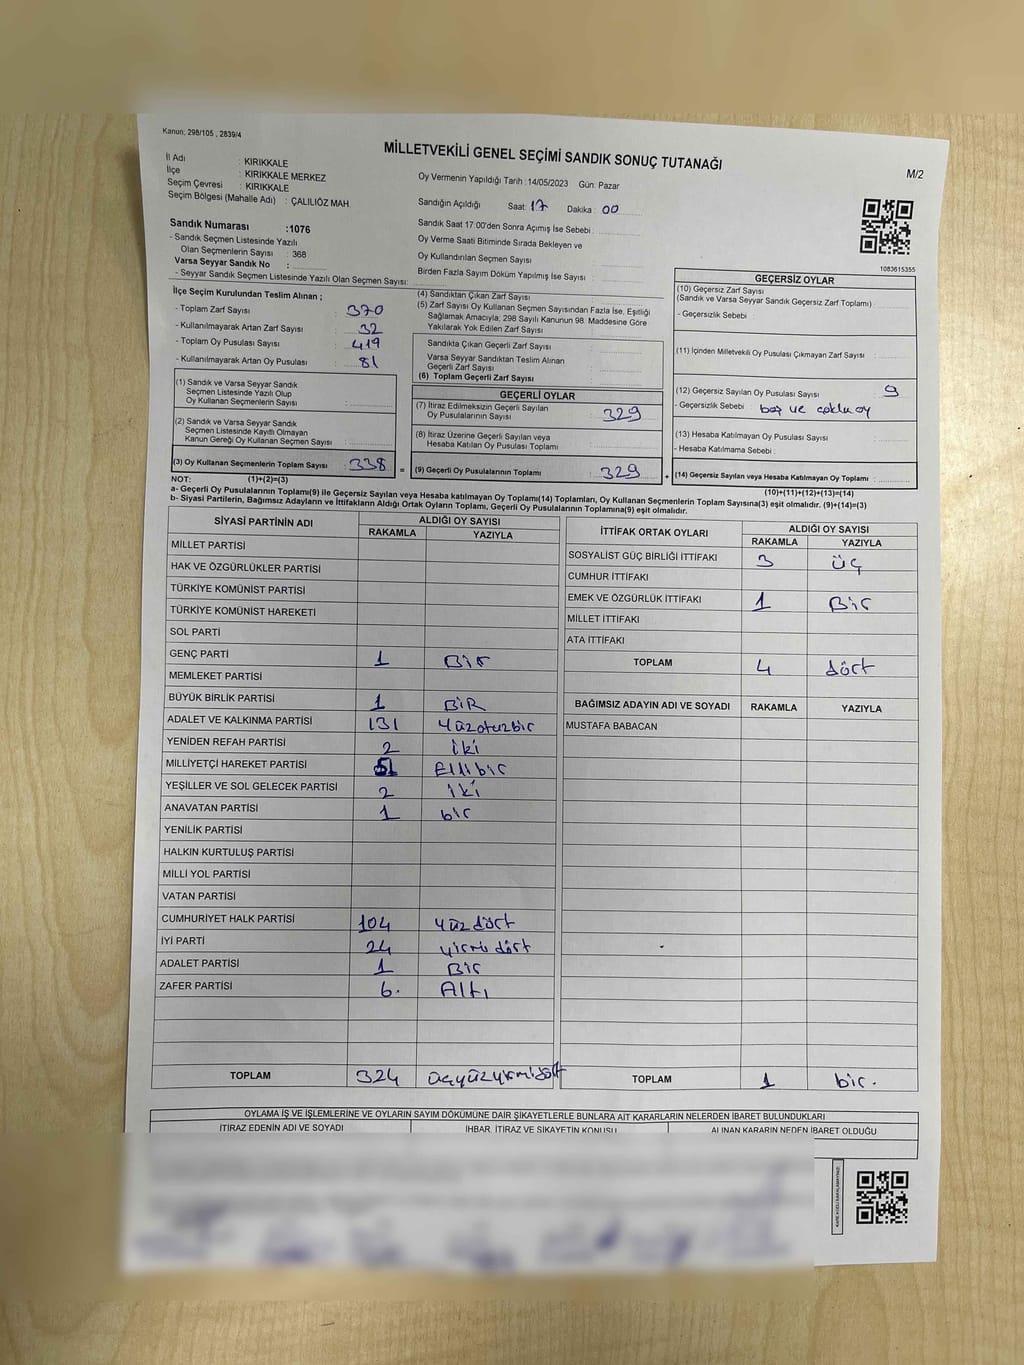 Kanun; 298/105 , 2839/4
MİLLETVEKİLİ GENEL SEÇİMİ SANDIK SONUÇ TUTANAĞI
M/2
İl Adı : KIRIKKALE
İlçe : KIRIKKALE MERKEZ
Seçim Çevresi : KIRIKKALE
Seçim Bölgesi (Mahalle Adı) : ÇALILIÖZ MAH.
Oy Vermenin Yapıldığı Tarih :14/05/2023 Gün: Pazar
Sandığın Açıldığı Saat: 17 Dakika : 00
Sandık Saat 17:00'den Sonra Açımış İse Sebebi :
Oy Verme Saati Bitiminde Sırada Bekleyen ve
Oy Kullandırılan Seçmen Sayısı :
Birden Fazla Sayım Döküm Yapılmış İse Sayısı :
1083615355
Sandık Numarası :1076
- Sandık Seçmen Listesinde Yazılı
Olan Seçmenlerin Sayısı : 368
Varsa Seyyar Sandık No :
- Seyyar Sandık Seçmen Listesinde Yazılı Olan Seçmen Sayısı:
İlçe Seçim Kurulundan Teslim Alınan ;
- Toplam Zarf Sayısı : 370
- Kullanılmayarak Artan Zarf Sayısı : 32
- Toplam Oy Pusulası Sayısı : 419
- Kullanılmayarak Artan Oy Pusulası : 81
(1) Sandık ve Varsa Seyyar Sandık
Seçmen Listesinde Yazılı Olup
Oy Kullanan Seçmenlerin Sayısı :
(2) Sandık ve Varsa Seyyar Sandık
Seçmen Listesinde Kayıtlı Olmayan
Kanun Gereği Oy Kullanan Seçmen Sayısı :
(3) Oy Kullanan Seçmenlerin Toplam Sayısı : 338 =
(4) Sandıktan Çıkan Zarf Sayısı :
(5) Zarf Sayısı Oy Kullanan Seçmen Sayısından Fazla İse, Eşitliği
Sağlamak Amacıyla; 298 Sayılı Kanunun 98. Maddesine Göre
Yakılarak Yok Edilen Zarf Sayısı :
Sandıkta Çıkan Geçerli Zarf Sayısı :
Varsa Seyyar Sandıktan Teslim Alınan
Geçerli Zarf Sayısı :
(6) Toplam Geçerli Zarf Sayısı :
GEÇERLİ OYLAR
(7) İtiraz Edilmeksizin Geçerli Sayılan
Oy Pusulalarının Sayısı : 329
(8) İtiraz Üzerine Geçerli Sayılan veya
Hesaba Katılan Oy Pusulası Toplamı :
(9) Geçerli Oy Pusulalarının Toplamı : 329 +
GEÇERSİZ OYLAR
(10) Geçersiz Zarf Sayısı
(Sandık ve Varsa Seyyar Sandık Geçersiz Zarf Toplamı) :
- Geçersizlik Sebebi :
(11) İçinden Milletvekili Oy Pusulası Çıkmayan Zarf Sayısı :
(12) Geçersiz Sayılan Oy Pusulası Sayısı : 9
- Geçersizlik Sebebi : boş ve çoklu oy
(13) Hesaba Katılmayan Oy Pusulası Sayısı :
- Hesaba Katılmama Sebebi :
(14) Geçersiz Sayılan veya Hesaba Katılmayan Oy Toplamı :
NOT: (1)+(2)=(3)
(10)+(11)+(12)+(13)=(14)
a- Geçerli Oy Pusulalarının Toplamı(9) ile Geçersiz Sayılan veya Hesaba katılmayan Oy Toplamı(14) Toplamları, Oy Kullanan Seçmenlerin Toplam Sayısına(3) eşit olmalıdır. (9)+(14)=(3)
b- Siyasi Partilerin, Bağımsız Adayların ve İttifakların Aldığı Ortak Oyların Toplamı, Geçerli Oy Pusulalarının Toplamına(9) eşit olmalıdır.
SİYASİ PARTİNİN ADI ALDIĞI OY SAYISI
RAKAMLA YAZIYLA
MİLLET PARTİSİ
HAK VE ÖZGÜRLÜKLER PARTİSİ
TÜRKİYE KOMÜNİST PARTİSİ
TÜRKİYE KOMÜNİST HAREKETİ
SOL PARTİ
GENÇ PARTİ 1 Bir
MEMLEKET PARTİSİ
BÜYÜK BİRLİK PARTİSİ 1 BİR
ADALET VE KALKINMA PARTİSİ 131 Yüzotuzbir
YENİDEN REFAH PARTİSİ 2 iki
MİLLİYETÇİ HAREKET PARTİSİ 51 Ellibir
YEŞİLLER VE SOL GELECEK PARTİSİ 2 iki
ANAVATAN PARTİSİ 1 bir
YENİLİK PARTİSİ
HALKIN KURTULUŞ PARTİSİ
MİLLİ YOL PARTİSİ
VATAN PARTİSİ
CUMHURİYET HALK PARTİSİ 104 Yüz dört
İYİ PARTİ 24 yirmi dört
ADALET PARTİSİ 1 Bir
ZAFER PARTİSİ 6. Altı
TOPLAM 324 üçyüzyirmidört
İTTİFAK ORTAK OYLARI ALDIĞI OY SAYISI
RAKAMLA YAZIYLA
SOSYALİST GÜÇ BİRLİĞİ İTTİFAKI 3 üç
CUMHUR İTTİFAKI
EMEK VE ÖZGÜRLÜK İTTİFAKI 1 Bir
MİLLET İTTİFAKI
ATA İTTİFAKI
TOPLAM 4 dört
BAĞIMSIZ ADAYIN ADI VE SOYADI RAKAMLA YAZIYLA
MUSTAFA BABACAN
TOPLAM 1 bir.
OYLAMA İŞ VE İŞLEMLERİNE VE OYLARIN SAYIM DÖKÜMÜNE DAİR ŞİKAYETLERLE BUNLARA AİT KARARLARIN NELERDEN İBARET BULUNDUKLARI
İTİRAZ EDENİN ADI VE SOYADI İHBAR, İTİRAZ VE ŞİKAYETİN KONUSU ALINAN KARARIN NEDEN İBARET OLDUĞU